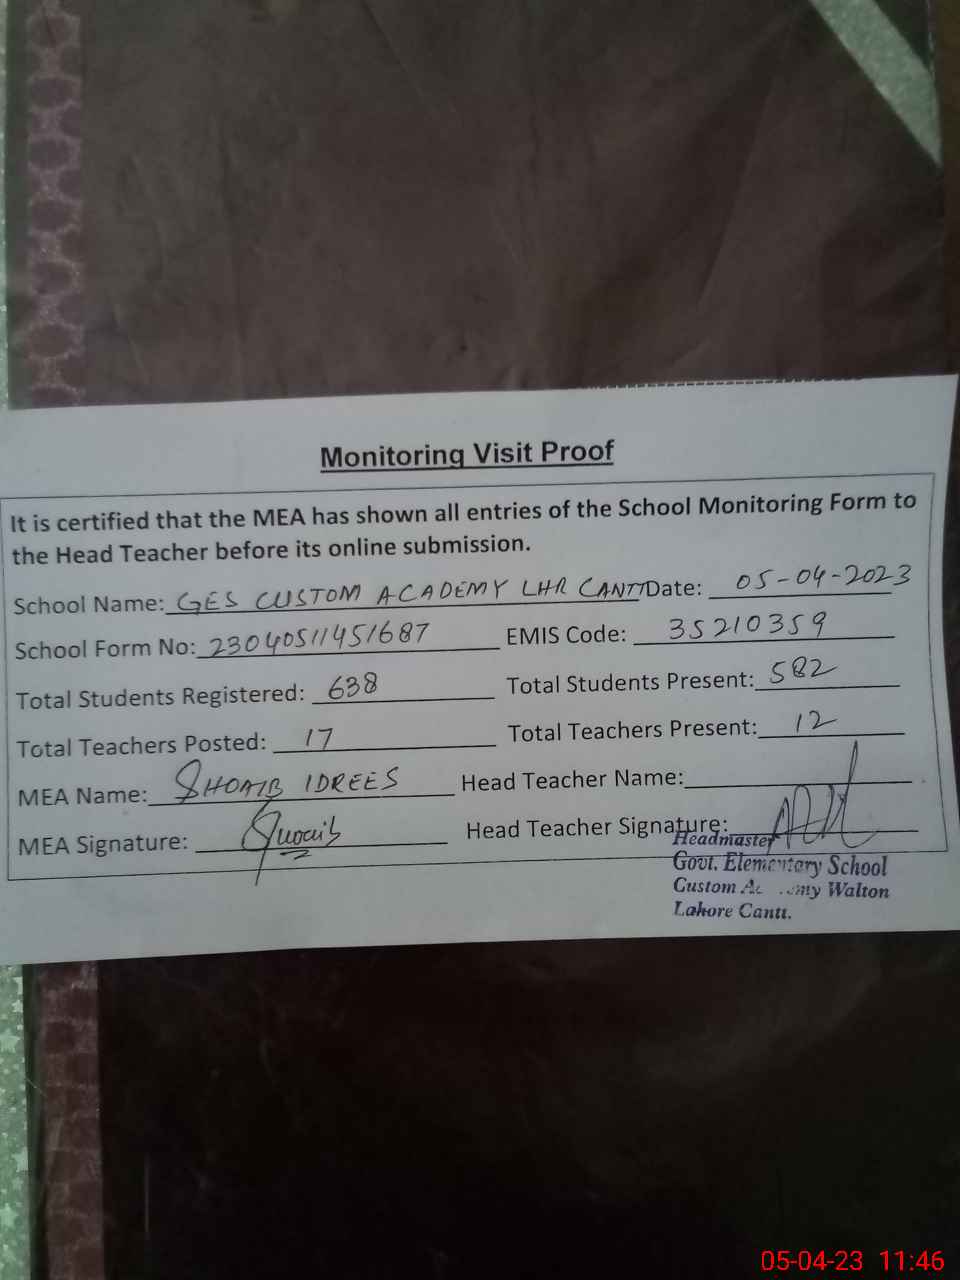 Monitoring Visit Proof
It is certified that the MEA has shown all entries of the School Monitoring Form to
the Head Teacher before its online submission.
School Name: GES CUSTOM ACADEMY LHR CANTT Date: 05-04-2023
School Form No: 23040511451687 EMIS Code: 35210359
Total Students Registered: 638 Total Students Present: 582
Total Teachers Posted: 17 Total Teachers Present: 12
MEA Name: SHOAIB IDREES Head Teacher Name:
MEA Signature: Shoaib Head Teacher Signature:
Headmaster
Govt. Elementary School
Custom Academy Walton
Lahore Cantt.
05-04-23 11:46